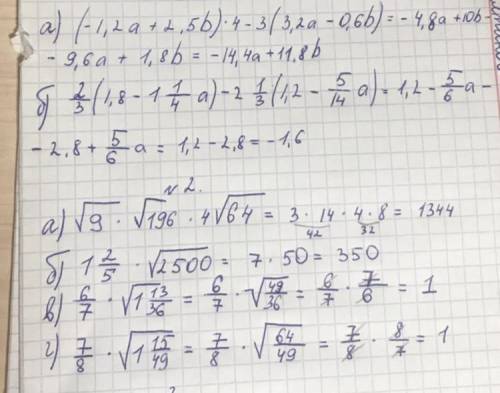 а) (-1,2a + 2,5b)·4 - 3(3,2a - 0,6b) = -4,8a + 10b -
- 9,6a + 1,8b = -14,4a + 11,8b
б) 2/3 (1,8 - 1 1/4 a) - 2 1/3 (1,2 - 5/14 a) = 1,2 - 5/6 a -
- 2,8 + 5/6 a = 1,2 - 2,8 = -1,6
№2.
а) √9 · √196 · 4√64 = 3 · 14 · 4 · 8 = 1344
42 32
б) 1 2/5 · √2500 = 7 · 50 = 350
в) 6/7 · √(1 13/36) = 6/7 · √(49/36) = 6/7 · 7/6 = 1
г) 7/8 · √(1 15/49) = 7/8 · √(64/49) = 7/8 · 8/7 = 1